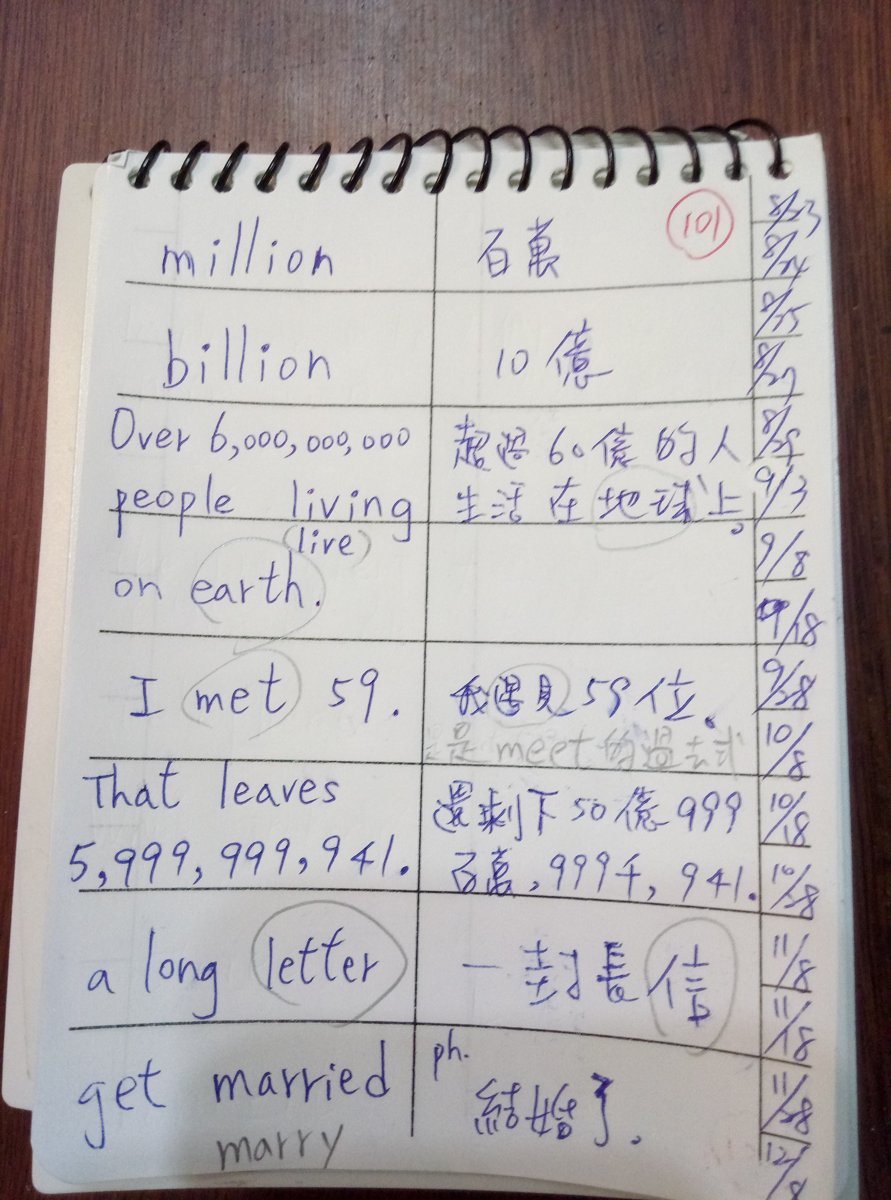 million 百萬 101
billion 10億
Over 6,000,000,000 超過60億的人
people living 生活在地球上。
(live)
on earth.
I met 59. 我遇見59位。
是meet的過去式
That leaves 還剩下50億999
5,999,999,941. 百萬,999千,941.
a long letter 一封長信
get married ph. 結婚了.
marry
8/23
8/24
8/25
8/27
8/29
9/3
9/8
9/18
9/28
10/8
10/18
10/28
11/8
11/18
11/28
12/8